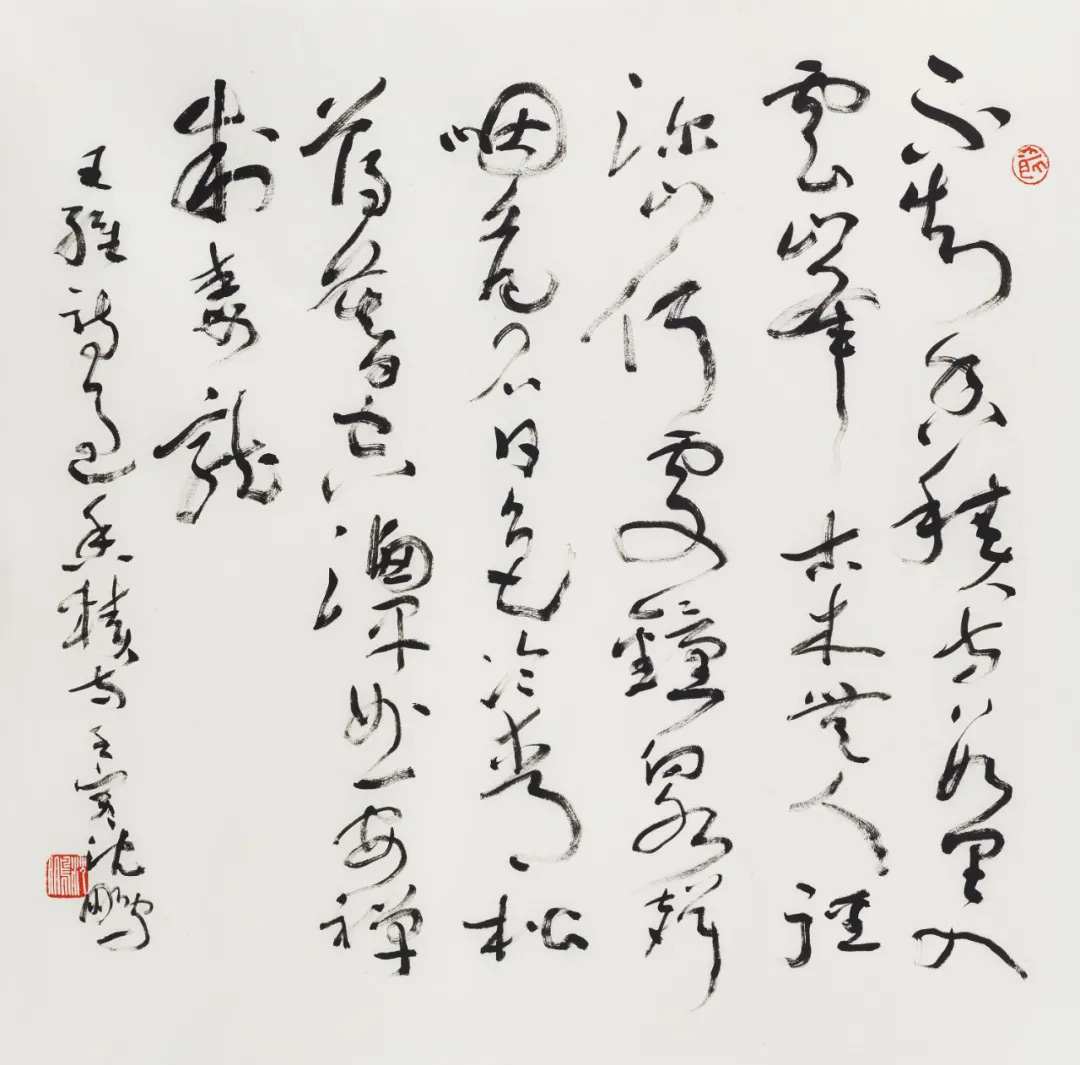 不知香積寺數里入
雲峯古木無人徑
深山何處鐘泉聲
咽危石日色冷青松
薄暮空潭曲安禪
制毒龍
王維詩過香積寺壬寅沈鵬